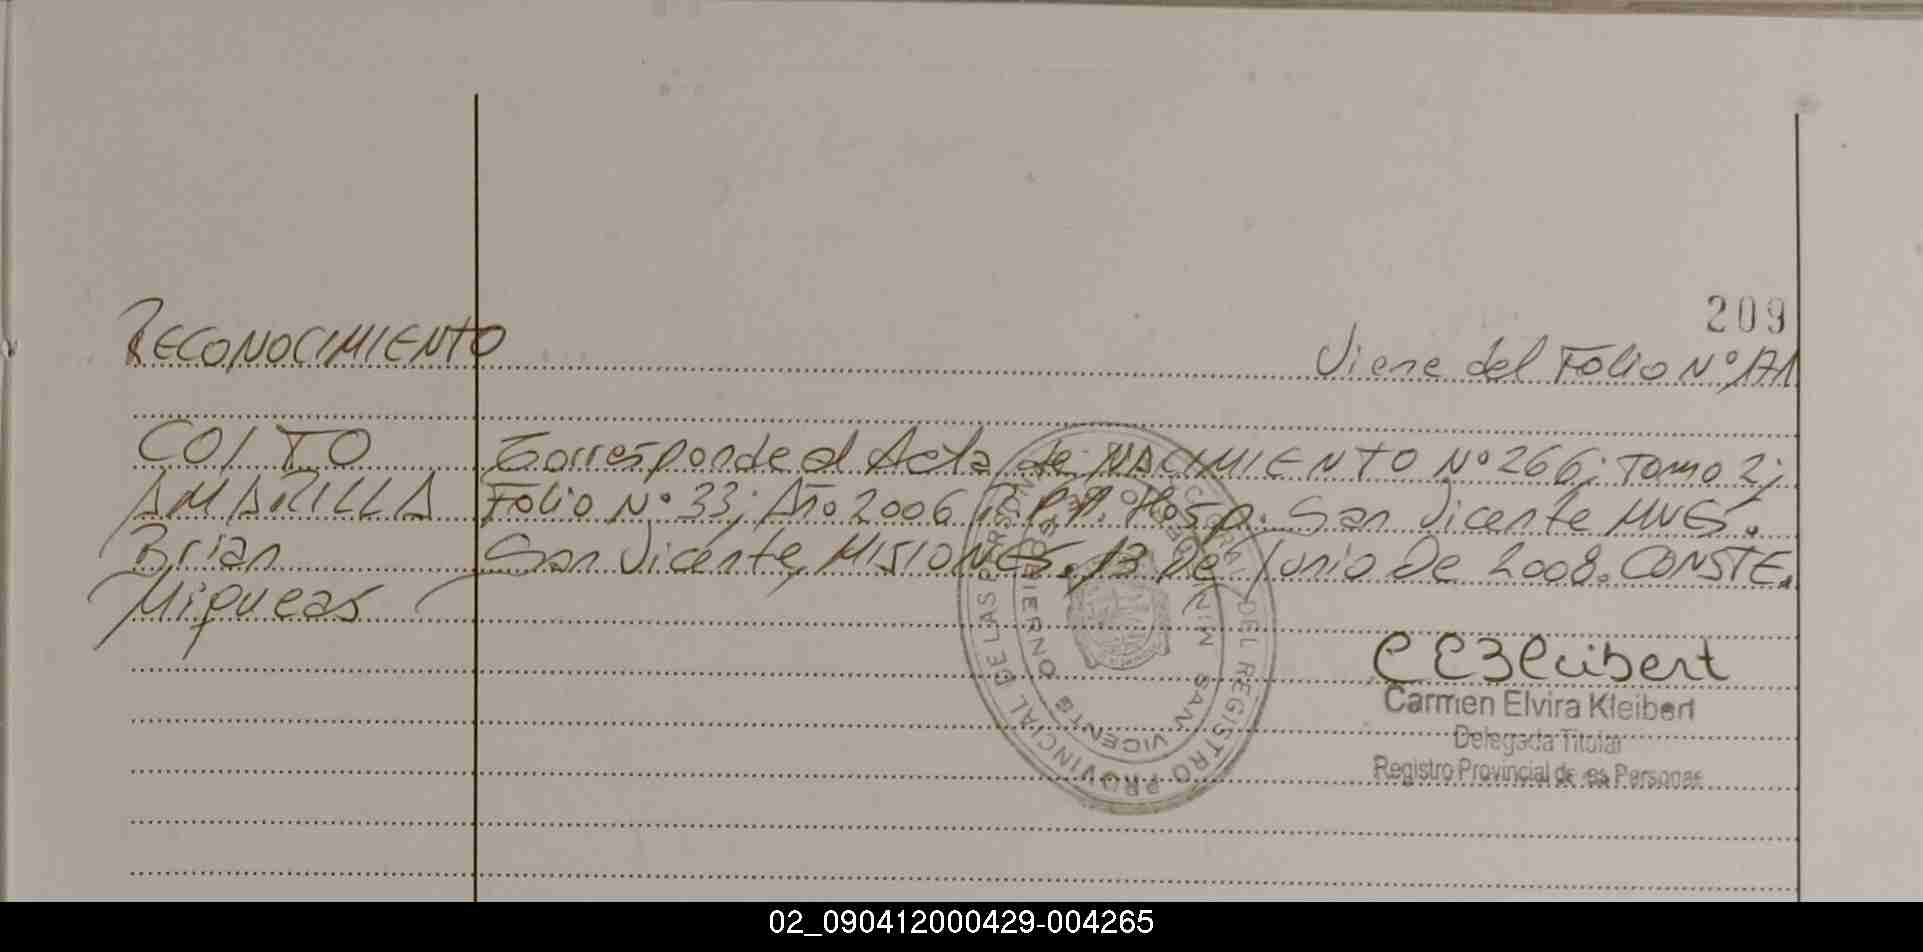 209
RECONOCIMIENTO
Viene del Folio Nº 171
COITO Corresponde al Acta de NACIMIENTO Nº 266; Tomo 2;
AMARILLA Folio Nº 33; Año 2006 Hosp. San Vicente MNES.
Brian San Vicente, MISIONES. 13 De Junio De 2008. CONSTE.
Miqueas
Carmen Elvira Kleibert
Delegada Titular
Registro Provincial de as Personas
REGISTRO PROVINCIAL DE LAS PERS
SAN VICENTE
02_090412000429-004265